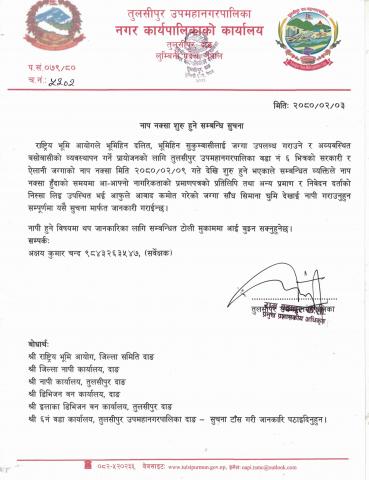 तुलसीपुर उपमहानगरपालिका
नगर कार्यपालिकाको कार्यालय
तुलसीपुर, दाङ
लुम्बिनी प्रदेश, नेपाल
प.सं.०७९/८०
च.नं.: ५२०२
मितिः २०८०/०२/०३
नाप नक्सा शुरु हुने सम्बन्धि सुचना
राष्ट्रिय भूमि आयोगले भूमिहिन दलित, भूमिहिन सुकुम्बासीलाई जग्गा उपलब्ध गराउने र अव्यवस्थित
बसोवासीको व्यवस्थापन गर्ने प्रायोजनको लागि तुलसीपुर उपमहानगरपालिका वडा नं ६ भित्रको सरकारी र
ऐलानी जग्गाको नाप नक्सा मिति २०८०/०२/०९ गते देखि शुरु हुने भएकाले सम्बन्धित व्यक्तिले नाप
नक्सा हुँदाको समयमा आ-आफ्नो नागरिकताको प्रमाणपत्रको प्रतिलिपि तथा अन्य प्रमाण र निवेदन दर्ताको
निस्सा लिइ उपस्थित भई आफुले आवाद कमोत गरेको जग्गा साँध सिमाना घुमि देखाई नापी गराउनुहुन
सम्पूर्णमा यसै सुचना मार्फत जानकारी गराईन्छ।
नापी हुने विषयमा थप जानकारीका लागि सम्बन्धित टोली मुकाममा आई बुझ्न सक्नुहुनेछ।
सम्पर्कः
अक्षय कुमार चन्द ९८४३२६३५४७, (सर्वेक्षक)
तुलसीपुर उपमहानगरपालिका
प्रमुख प्रशासकीय अधिकृत
बोधार्थः
श्री राष्ट्रिय भूमि आयोग, जिल्ला समिति दाङ
श्री जिल्ला नापी कार्यालय, दाङ
श्री नापी कार्यालय, तुलसीपुर दाङ
श्री डिभिजन वन कार्यालय, दाङ
श्री इलाका डिभिजन वन कार्यालय, तुलसीपुर दाङ
श्री ६नं वडा कार्यालय, तुलसीपुर उपमहानगरपालिका दाङ – सुचना टाँस गरी जानकारि पठाइदिनुहुन।
०८२-५२०२३६ वेबसाइटः www.tulsipurmun.gov.np, इमेलः oapi.tsmc@outlook.com